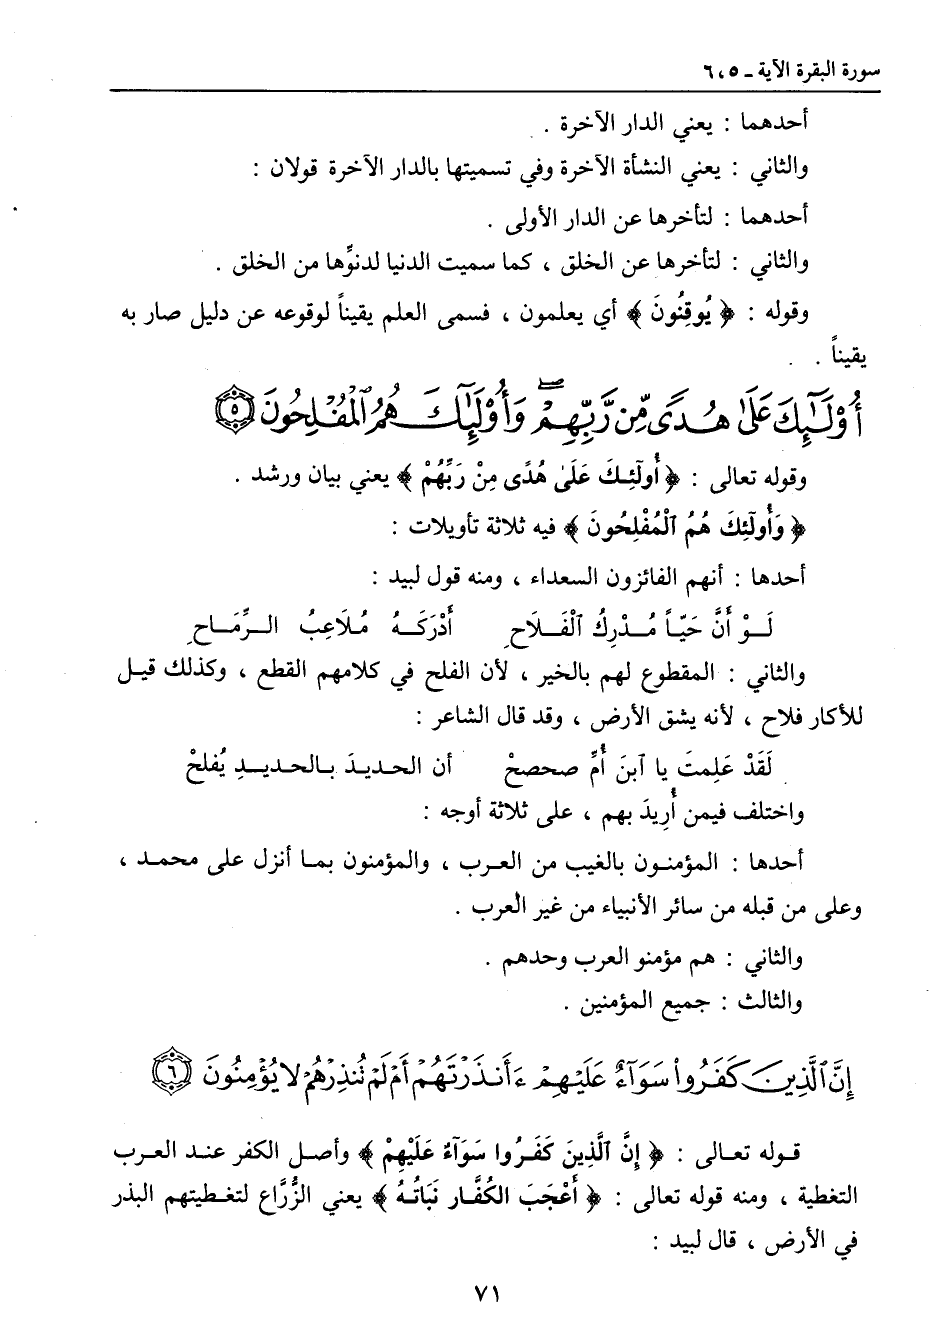 سورة البقرة الآية ـ ٥ ، ٦
أحدهما : يعني الدار الآخرة .
والثاني : يعني النشأة الآخرة وفي تسميتها بالدار الآخرة قولان :
أحدهما : لتأخرها عن الدار الأولى .
والثاني : لتأخرها عن الخلق ، كما سميت الدنيا لدنوِّها من الخلق .
وقوله : ﴿ يُوقِنُونَ ﴾ أي يعلمون ، فسمى العلم يقيناً لوقوعه عن دليل صار به
يقيناً .
أُوْلَٰٓئِكَ عَلَىٰ هُدًى مِّن رَّبِّهِمْ ۖ وَأُوْلَٰٓئِكَ هُمُ ٱلْمُفْلِحُونَ ٥
وقوله تعالى : ﴿ أُولَٰئِكَ عَلَىٰ هُدًى مِنْ رَبِّهُمْ ﴾ يعني بيان ورشد .
﴿ وَأُولَٰئِكَ هُمُ ٱلْمُفْلِحُونَ ﴾ فيه ثلاثة تأويلات :
أحدها : أنهم الفائزون السعداء ، ومنه قول لبيد :
لَــوْ أَنَّ حَيّـاً مُــدْرِكُ ٱلْفَــلَاحِ أَدْرَكَــهُ مُـلَاعِبُ الــرِّمَـاحِ
والثاني : المقطوع لهم بالخير ، لأن الفلح في كلامهم القطع ، وكذلك قيـل
للأكار فلاح ، لأنه يشق الأرض ، وقد قال الشاعر :
لَقَدْ عَلِمتَ يا ٱبنَ أُمِّ صحصحْ أن الحـديـدَ بـالحـديـدِ يُفلحْ
واختلف فيمن أُرِيدَ بهم ، على ثلاثة أوجه :
أحدها : المؤمنـون بالغيب من العـرب ، والمؤمنون بمـا أنزل على محمـد ،
وعلى من قبله من سائر الأنبياء من غير العرب .
والثاني : هم مؤمنو العرب وحدهم .
والثالث : جميع المؤمنين .
إِنَّ ٱلَّذِينَ كَفَرُواْ سَوَآءٌ عَلَيْهِمْ ءَأَنذَرْتَهُمْ أَمْ لَمْ تُنذِرْهُمْ لَا يُؤْمِنُونَ ٦
قـولـه تعـالى : ﴿ إِنَّ ٱلَّذِينَ كَفَرُوا سَوَآءٌ عَلَيْهِمْ ﴾ وأصـل الكفر عنـد العرب
التغطية ، ومنه قوله تعالى : ﴿ أَعْجَبَ الكُفَّار نَبَاتُـهُ ﴾ يعني الزُّرَّاع لتغـطيتهم البذر
في الأرض ، قال لبيد :
٧١